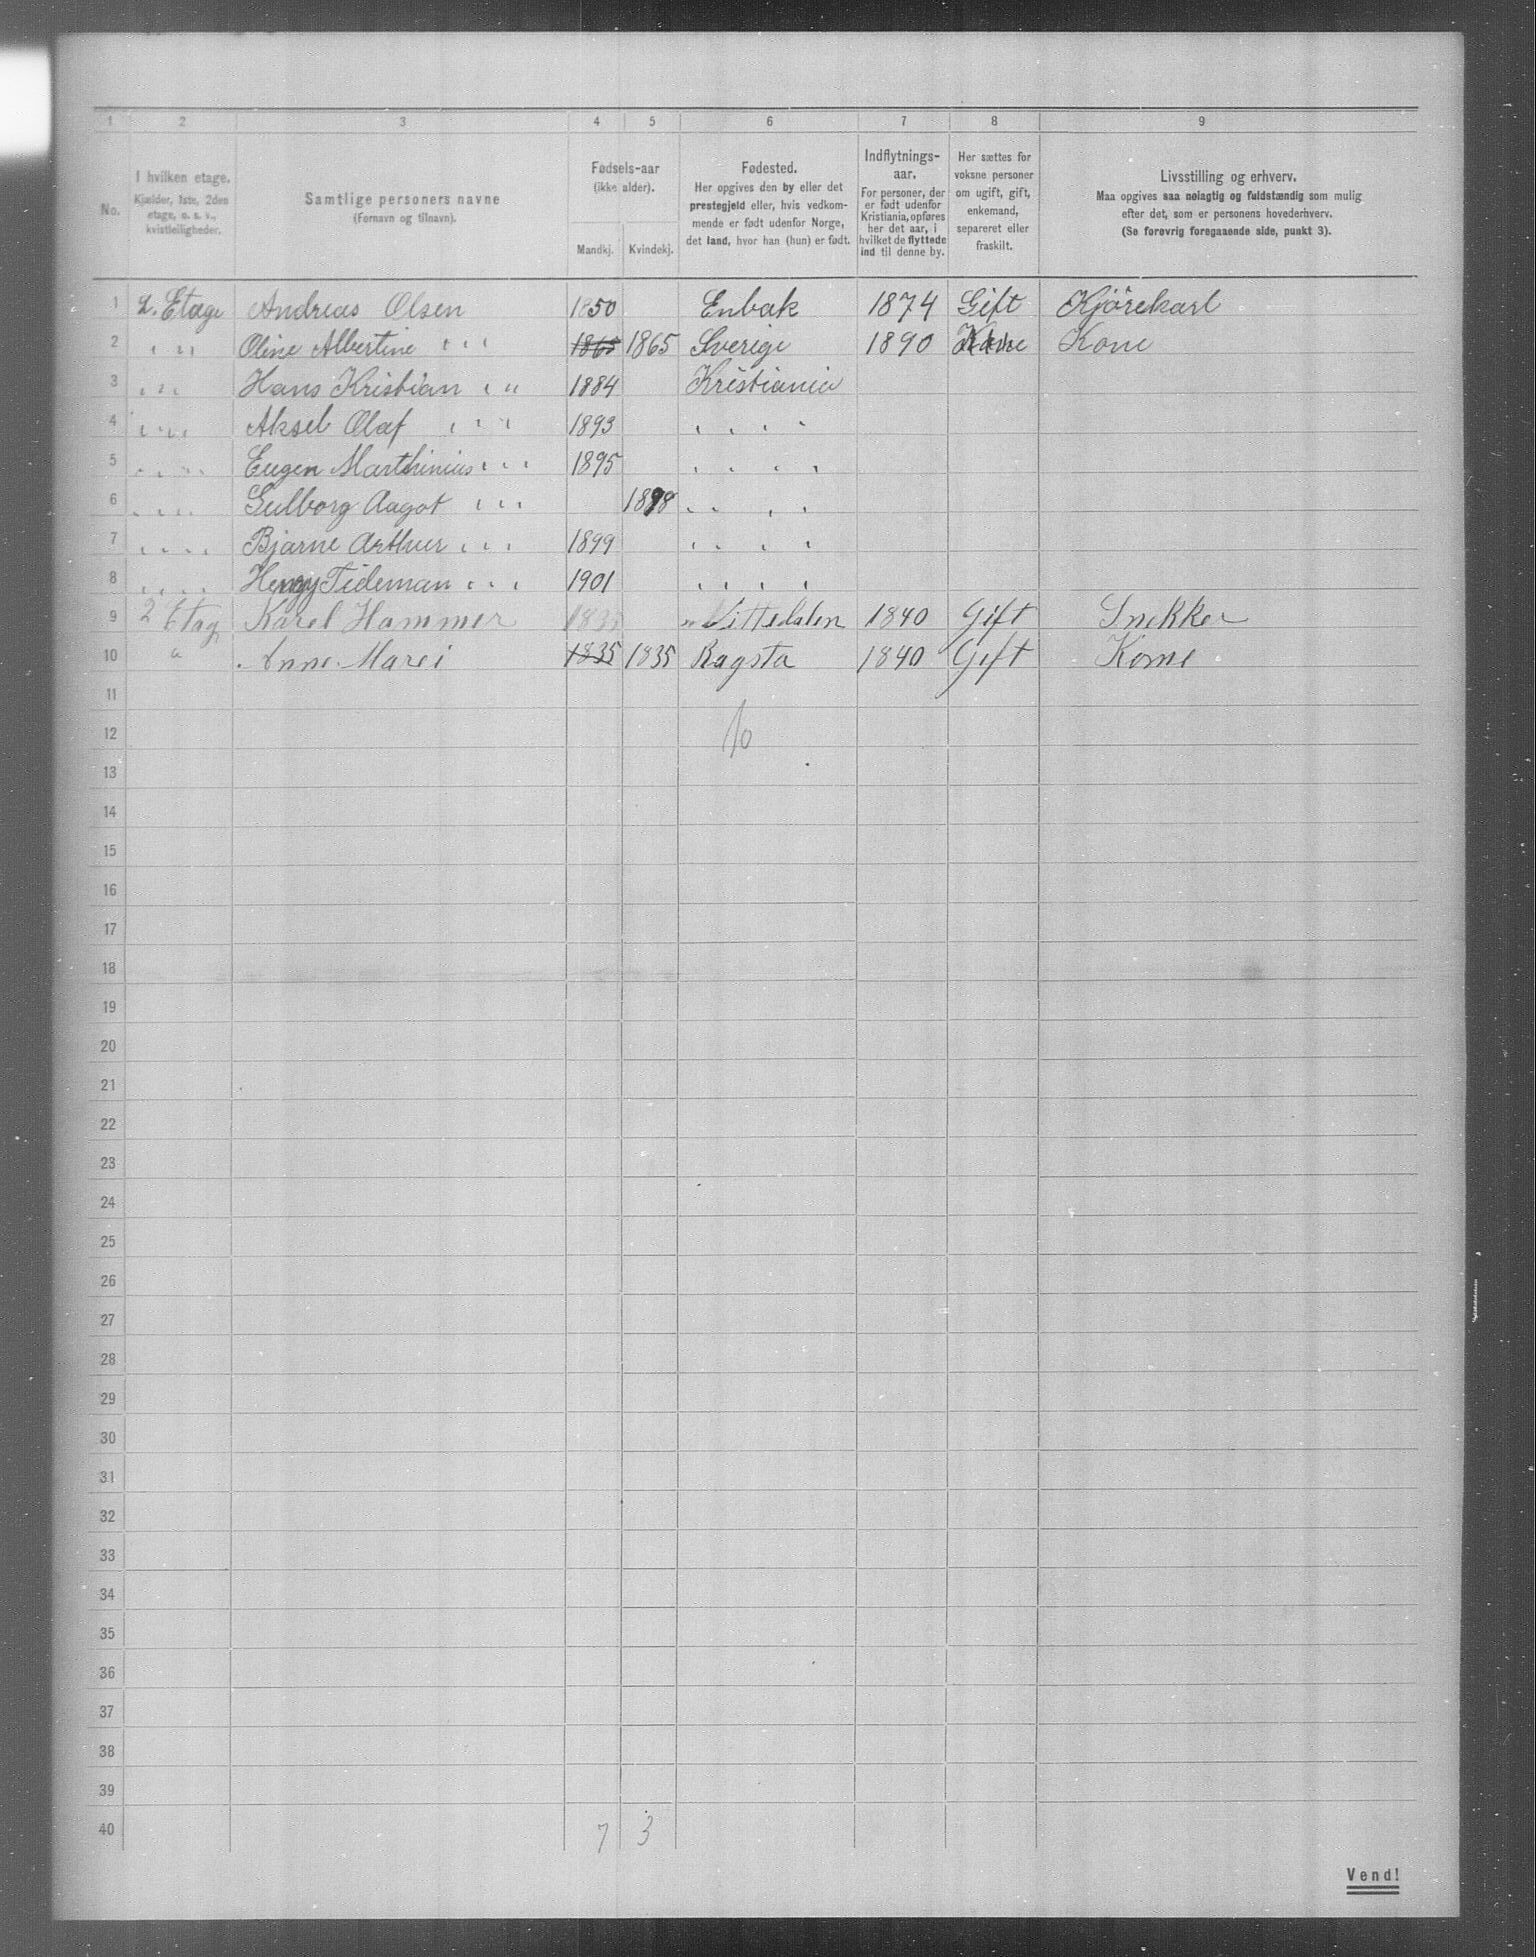 1 2 3 4 5 6 7 8 9
No.
I hvilken etage.
Kjælder, 1ste, 2den
etage, o. s. v.,
kvistleiligheder.
Samtlige personers navne
(Fornavn og tilnavn).
Fødsels-aar
(ikke alder).
Mandkj. Kvindekj.
Fødested.
Her opgives den by eller det
prestegjeld eller, hvis vedkom-
mende er født udenfor Norge,
det land, hvor han (hun) er født.
Indflytnings-
aar.
For personer, der
er født udenfor
Kristiania, opføres
her det aar, i
hvilket de flyttede
ind til denne by.
Her sættes for
voksne personer
om ugift, gift,
enkemand,
separeret eller
fraskilt.
Livsstilling og erhverv.
Maa opgives saa nøiagtig og fuldstændig som mulig
efter det, som er personens hovederhverv.
(Se forøvrig foregaaende side, punkt 3).
1 2. Etage Andreas Olsen 1850 Enbak 1874 Gift Kjörekarl
2 " " " Oline Albertine " " " 1865 1865 Sverige 1890 Kone
3 " " " Hans Kristian " " 1884 Kristiania
4 " " " Aksel Olaf " " " 1893 " " " "
5 " " " " Eugen Marthinius " " " 1895 " " " "
6 " " " " Gulborg Aagot " " " 1898 " " " "
7 " " " " Bjarne Arthur " " " 1899 " " " "
8 " " " " Henry Tideman " " " 1901 " " " "
9 2 Etag Karel Hammer 1833 Nittedalen 1840 Gift Snekker
10 " Anne Marei 1835 1835 Ragsta 1840 Gift Kone
11
12 10
13
14
15
16
17
18
19
20
21
22
23
24
25
26
27
28
29
30
31
32
33
34
35
36
37
38
39
40 7 3
Vend!